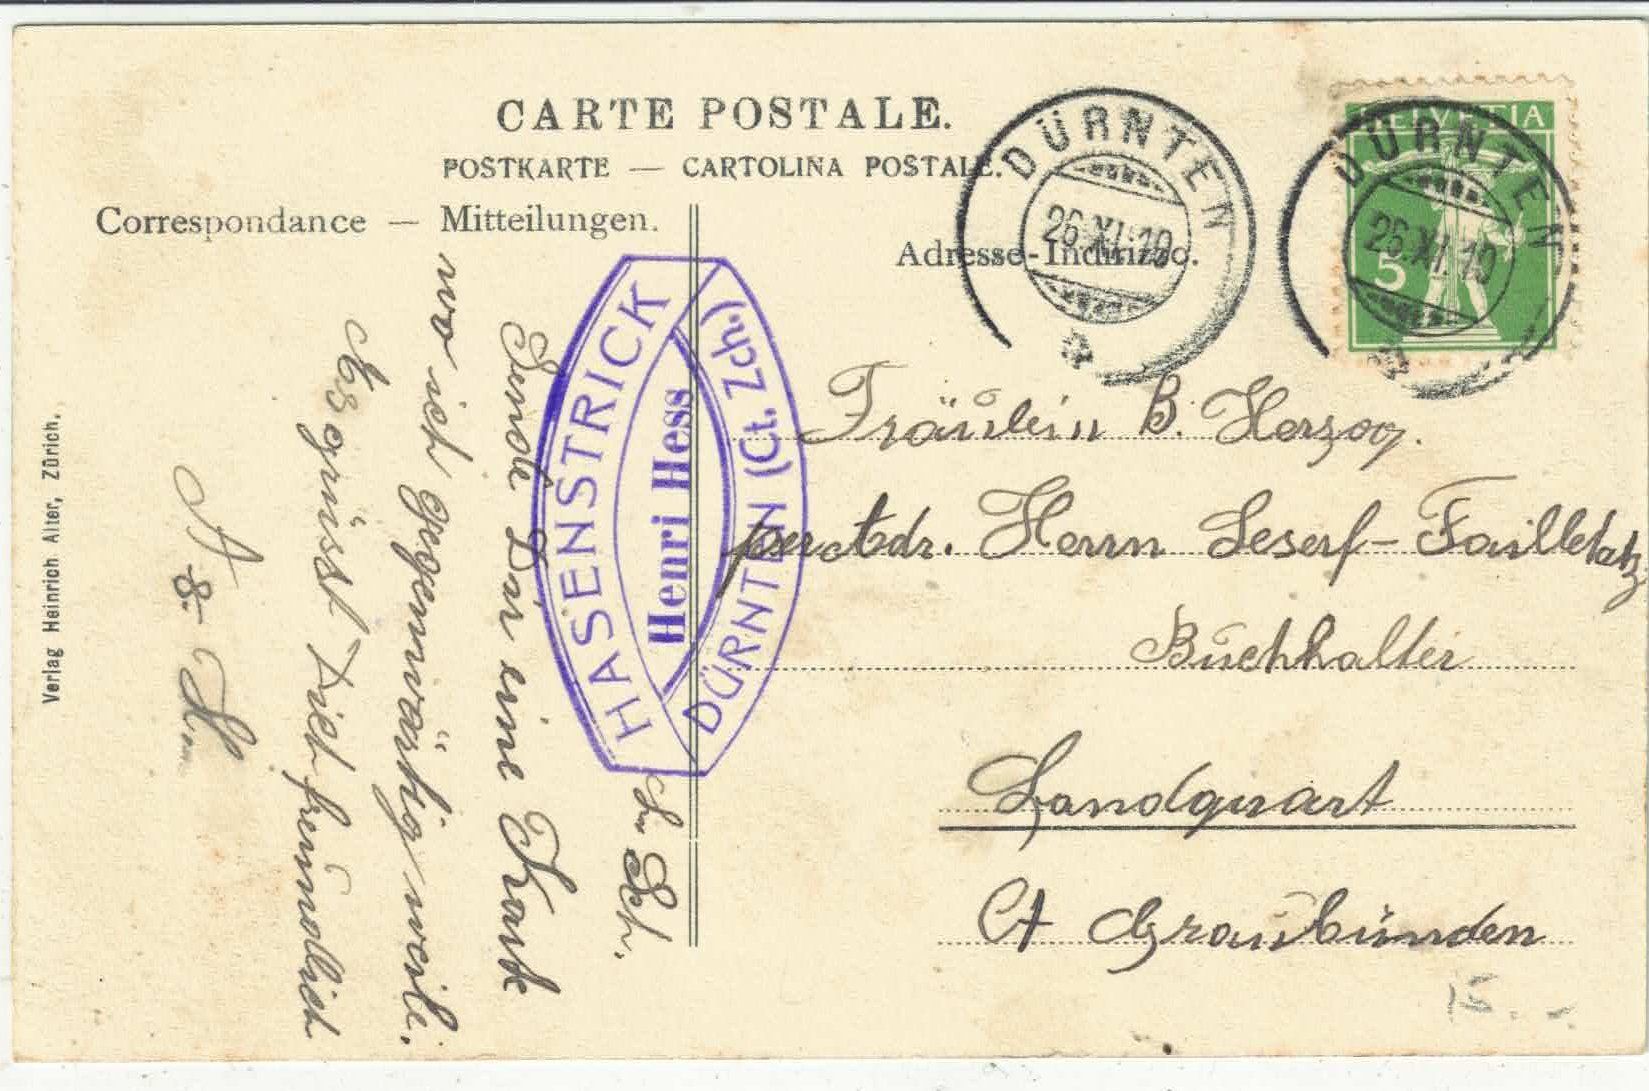 CARTE POSTALE.
POSTKARTE — CARTOLINA POSTALE.
Correspondance — Mitteilungen.
Adresse-Indirizzo.
DÜRNTEN
26.XI.10
HELVETIA
5
DÜRNTEN
26.XI.10
HASENSTRICK
Henri Hess
DÜRNTEN (Ct. Zch.)
L. Sch.
Sende Dir eine Karte
wo ich gegenwärtig weile.
Es grüsst Dich freundlich
Fräulein B. Herzog.
per Adr. Herrn
Buchhalter
Landquart
Ct Graubünden
15.-
Verlag Heinrich Alter, Zürich.